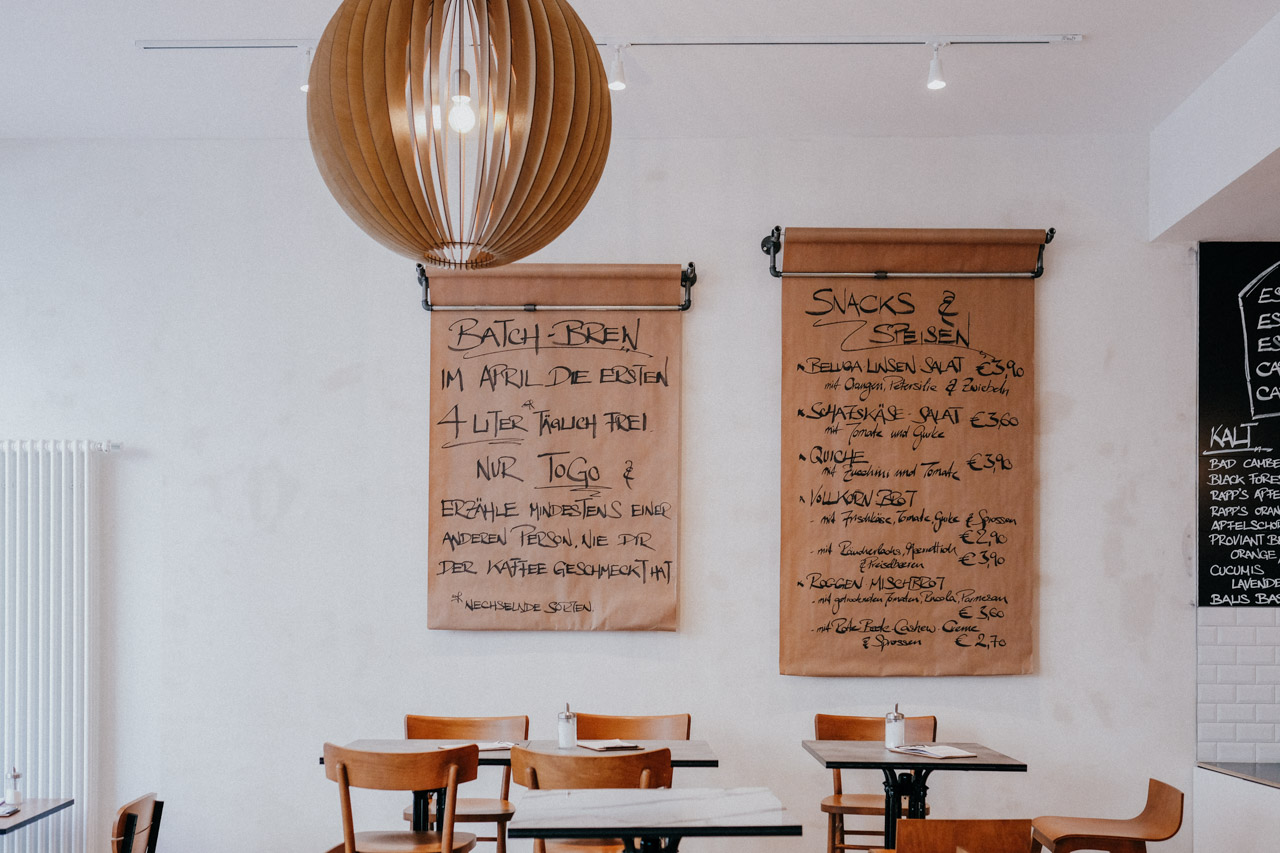 BATCH-BREW
IM APRIL DIE ERSTEN
4 LITER* TÄGLICH FREI.
NUR TOGO &
ERZÄHLE MINDESTENS EINER
ANDEREN PERSON, WIE DIR
DER KAFFEE GESCHMECKT HAT
*WECHSELNDE SORTEN.
SNACKS &
SPEISEN
BELUGA LINSEN SALAT €3,90
mit Orangen, Petersilie & Zwiebeln
SCHAFSKÄSE-SALAT €3,60
mit Tomate und Gurke
QUICHE
mit Zucchini und Tomate €3,90
VOLLKORN BROT
- mit Frischkäse, Tomate, Gurke & Sprossen
€2,90
- mit Räucherlachs, Meerrettich
& Preiselbeeren €3,90
ROGGEN MISCHBROT
- mit getrockneten Tomaten, Rucola, Parmesan
€3,60
- mit Rote Beete-Cashew-Creme
& Sprossen €2,70
ES
ES
ES
CA
CA
KALT
BAD CAMBE
BLACK FORE
RAPP'S APFE
RAPP'S ORAN
APFELSCHOR
PROVIANT BI
ORANGE,
CUCUMIS
LAVENDE
BALIS BAS